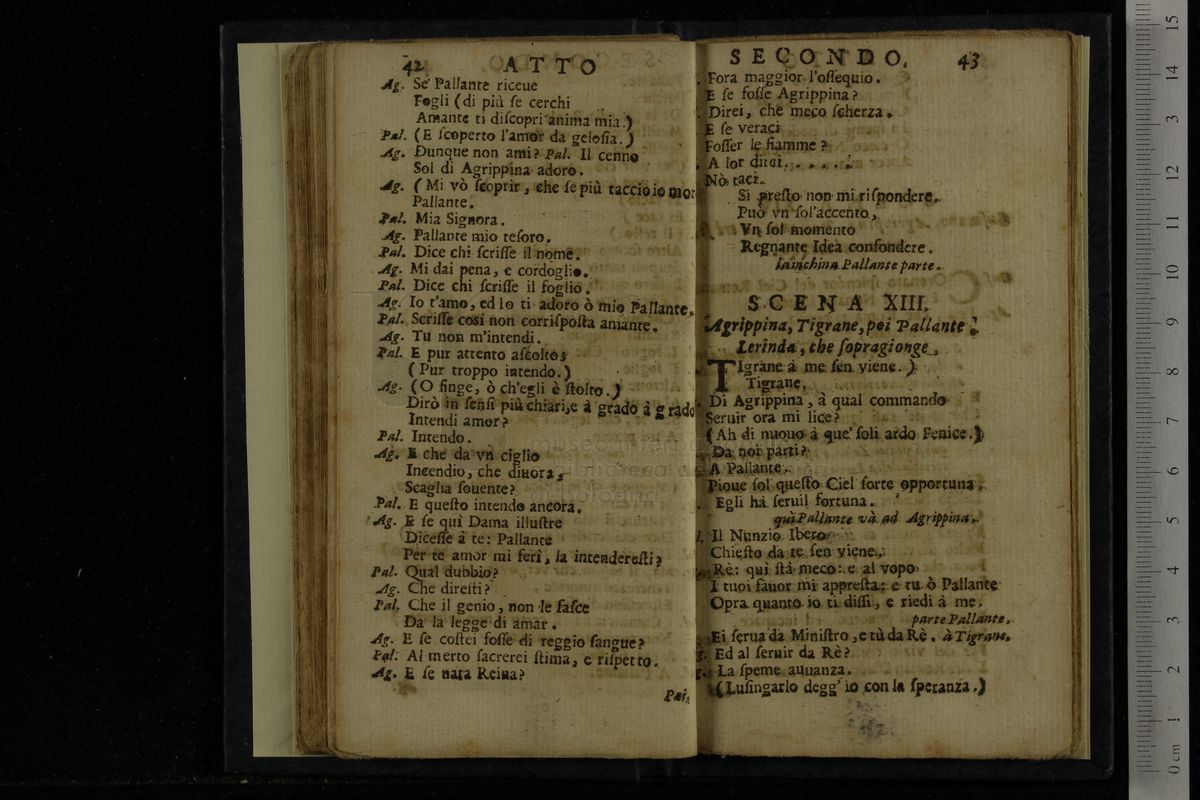 42 ATTO
Ag. Se Pallante riceue
Fogli (di più ſe cerchi
Amante ti diſcopri anima mia.)
Pal. (E ſcoperto l'amor da geloſia.)
Ag. Dunque non ami? Pal. Il cenno
Sol di Agrippina adoro.
Ag. (Mi vò ſcoprir, che ſe più taccio io mor
Pallante.
Pal. Mia Signora.
Ag. Pallante mio teſoro.
Pal. Dice chi ſcriſſe il nome.
Ag. Mi dai pena, e cordoglio.
Pal. Dice chi ſcriſſe il foglio.
Ag. Io t'amo, ed Io ti adoro ò mio Pallante.
Pal. Scriſſe così non corriſpoſta amante.
Ag. Tu non m'intendi.
Pal. E pur attento aſcolto;
(Pur troppo intendo.)
Ag. (O finge, ò ch'egli è ſtolto.)
Dirò in ſenſi più chiari, e à grado à grado
Intendi amor?
Pal. Intendo.
Ag. E che da vn ciglio
Incendio, che diuora,
Scaglia ſouente?
Pal. E queſto intendo ancora.
Ag. E ſe quì Dama illuſtre
Diceſſe à te: Pallante
Per te amor mi ferì, la intendereſti?
Pal. Qual dubbio?
Ag. Che direſti?
Pal. Che il genio, non le faſce
Dà la legge di amar.
Ag. E ſe coſtei foſſe di reggio ſangue?
Pal. Al merto ſacrerei ſtima, e riſpetto.
Ag. E ſe nata Reina?
Pal.
SECONDO. 43
Fora maggior l'oſſequio.
E ſe foſſe Agrippina?
Direi, che meco ſcherza.
E ſe veraci
Foſſer le fiamme?
A lor direi. . . . . .
Nò taci.
Sì preſto non mi riſpondere.
Può vn ſol'accento,
Vn ſol momento
Regnante Idea confondere.
la inchina Pallante parte.
SCENA XIII.
Agrippina, Tigrane, poi Pallante
Lerinda, che ſopragionge.
TIgrane à me ſen viene.)
Tigrane.
Di Agrippina, à qual commando
Seruir ora mi lice?
(Ah di nuouo à que' ſoli ardo Fenice.)
Da noi parti?
A Pallante.
Pioue ſol queſto Ciel ſorte opportuna.
Egli hà ſeruil fortuna.
quì Pallante và ad Agrippina.
Il Nunzio Ibero
Chieſto da te ſen viene.
Rè: quì ſtà meco: e al vopo
I tuoi fauor mi appreſta: e tu ò Pallante
Opra quanto io ti diſſi, e riedi à me.
parte Pallante.
Ei ſerua da Miniſtro, e tù da Rè. à Tigrane.
Ed al ſeruir da Rè?
La ſpeme auuanza.
(Luſingarlo degg' io con la ſperanza.)